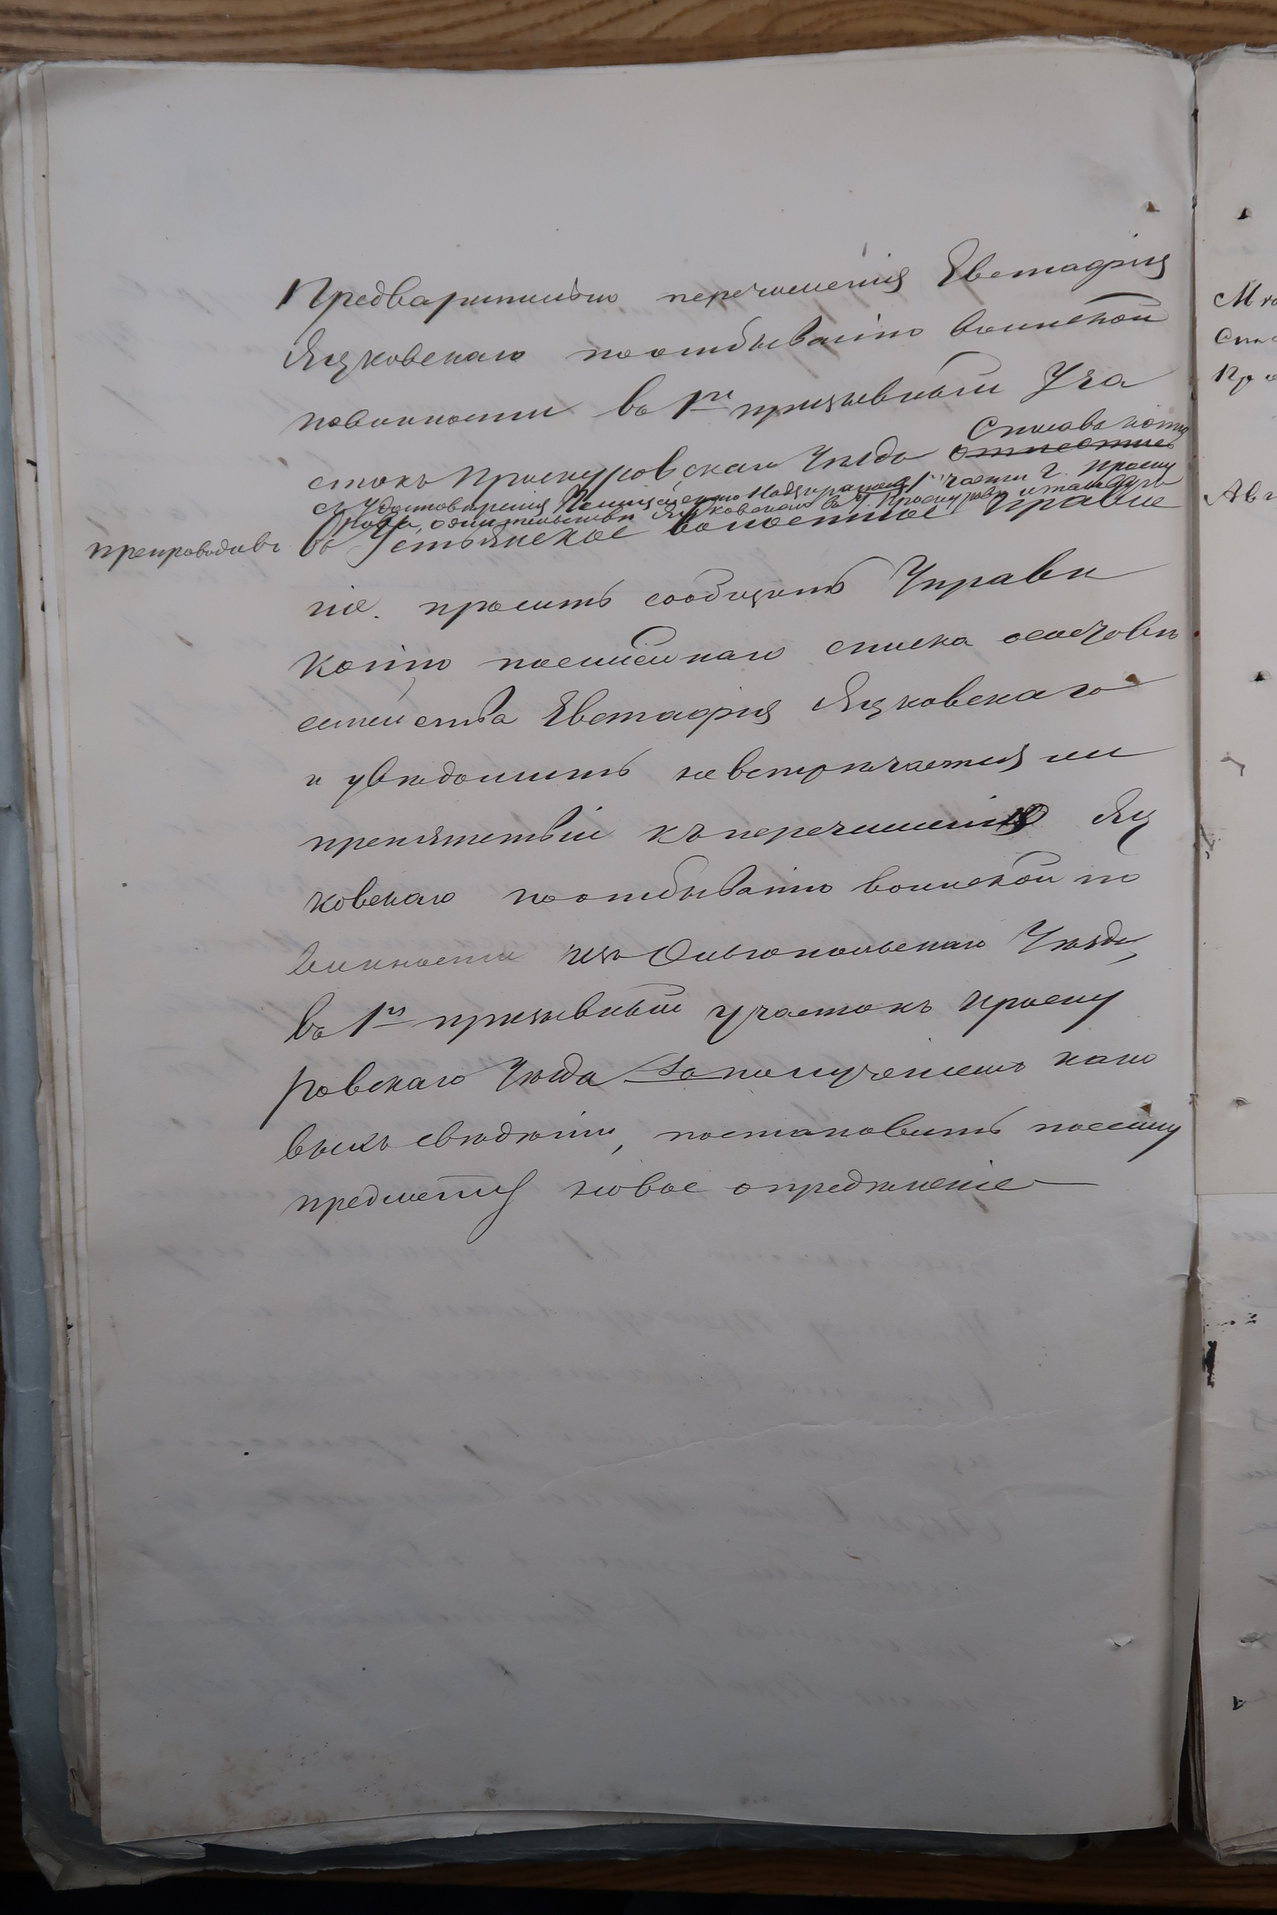 Предварительно перечисленія Евстафія
Яцковскаго по отбыванію воинской
повинности въ 1й призывный Уча
стокъ Проскуровскаго Уѣзда отнестись
Списавъ копію
съ Удостовѣренія Полицейскаго Надзирателя 1 части г. Проску
рова, о жительствѣ Яцковскаго въ г. Проскуровѣ и таковую
препроводивъ
въ Устьянское волостное Правле
ніе. просить сообщить Управѣ
копію посемейнаго списка о составѣ
семейства Евстафія Яцковскаго
и увѣдомить не встрѣчается ли
препятствій къ перечисленію Яц
ковскаго по отбыванію воинской по
винности изъ Ольгопольскаго Уѣзда,
въ 1й призывный участокъ Проску
ровскаго Уѣзда За полученіемъ како
выхъ свѣдѣній, постановить по сему
предмету новое опредѣленіе
Ми
Спис
Пр
Авг